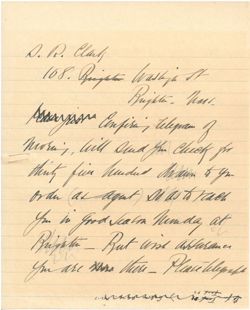 D. R. Clark
108 Brighton Washington St
Brighton, Mass.
Confirming telegram of
morning, will send you check for
thirty five hundred drawn to you
order (as agent) so as to reach
you in good season Monday at
Brighton - But want assurance
you are there - Please telegraph